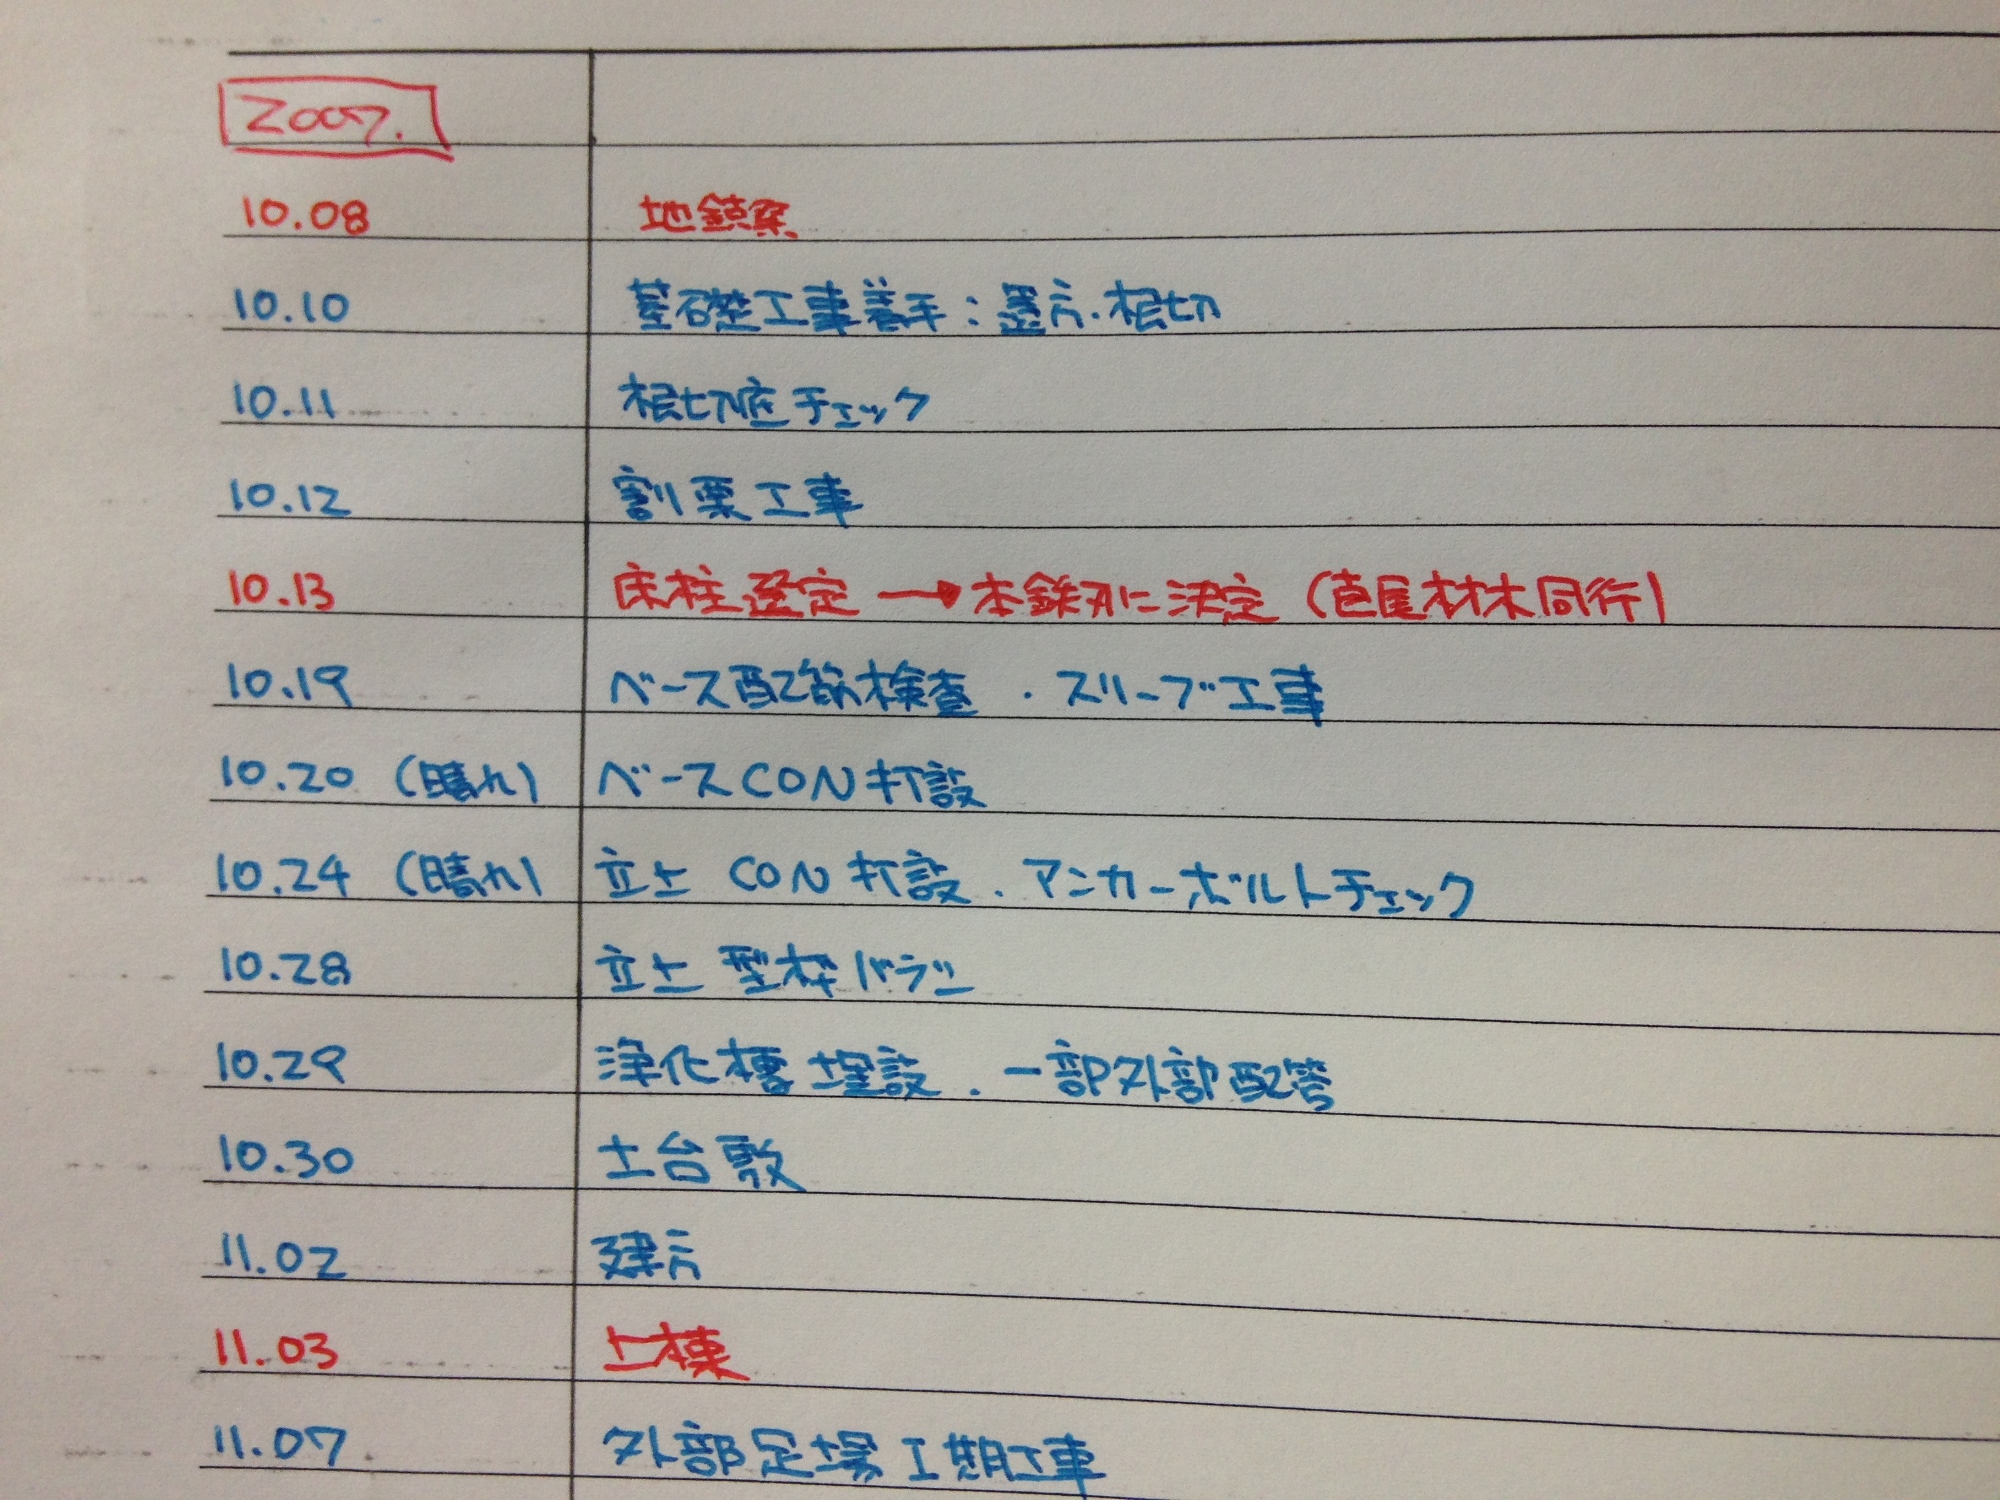 2007.
10.08 地鎮祭
10.10 基礎工事着手:墨方.根切
10.11 根切底チェック
10.12 割栗工事
10.13 床柱選定 → 本鉄刀に決定(直尾材木同行)
10.19 ベース配筋検査 ・スリーブ工事
10.20 (晴れ) ベースCON打設
10.24 (晴れ) 立上 CON 打設.アンカーボルトチェック
10.28 立上 型枠バラシ
10.29 浄化槽 埋設.一部外部配管
10.30 土台敷
11.02 建方
11.03 上棟
11.07 外部足場 I期工事